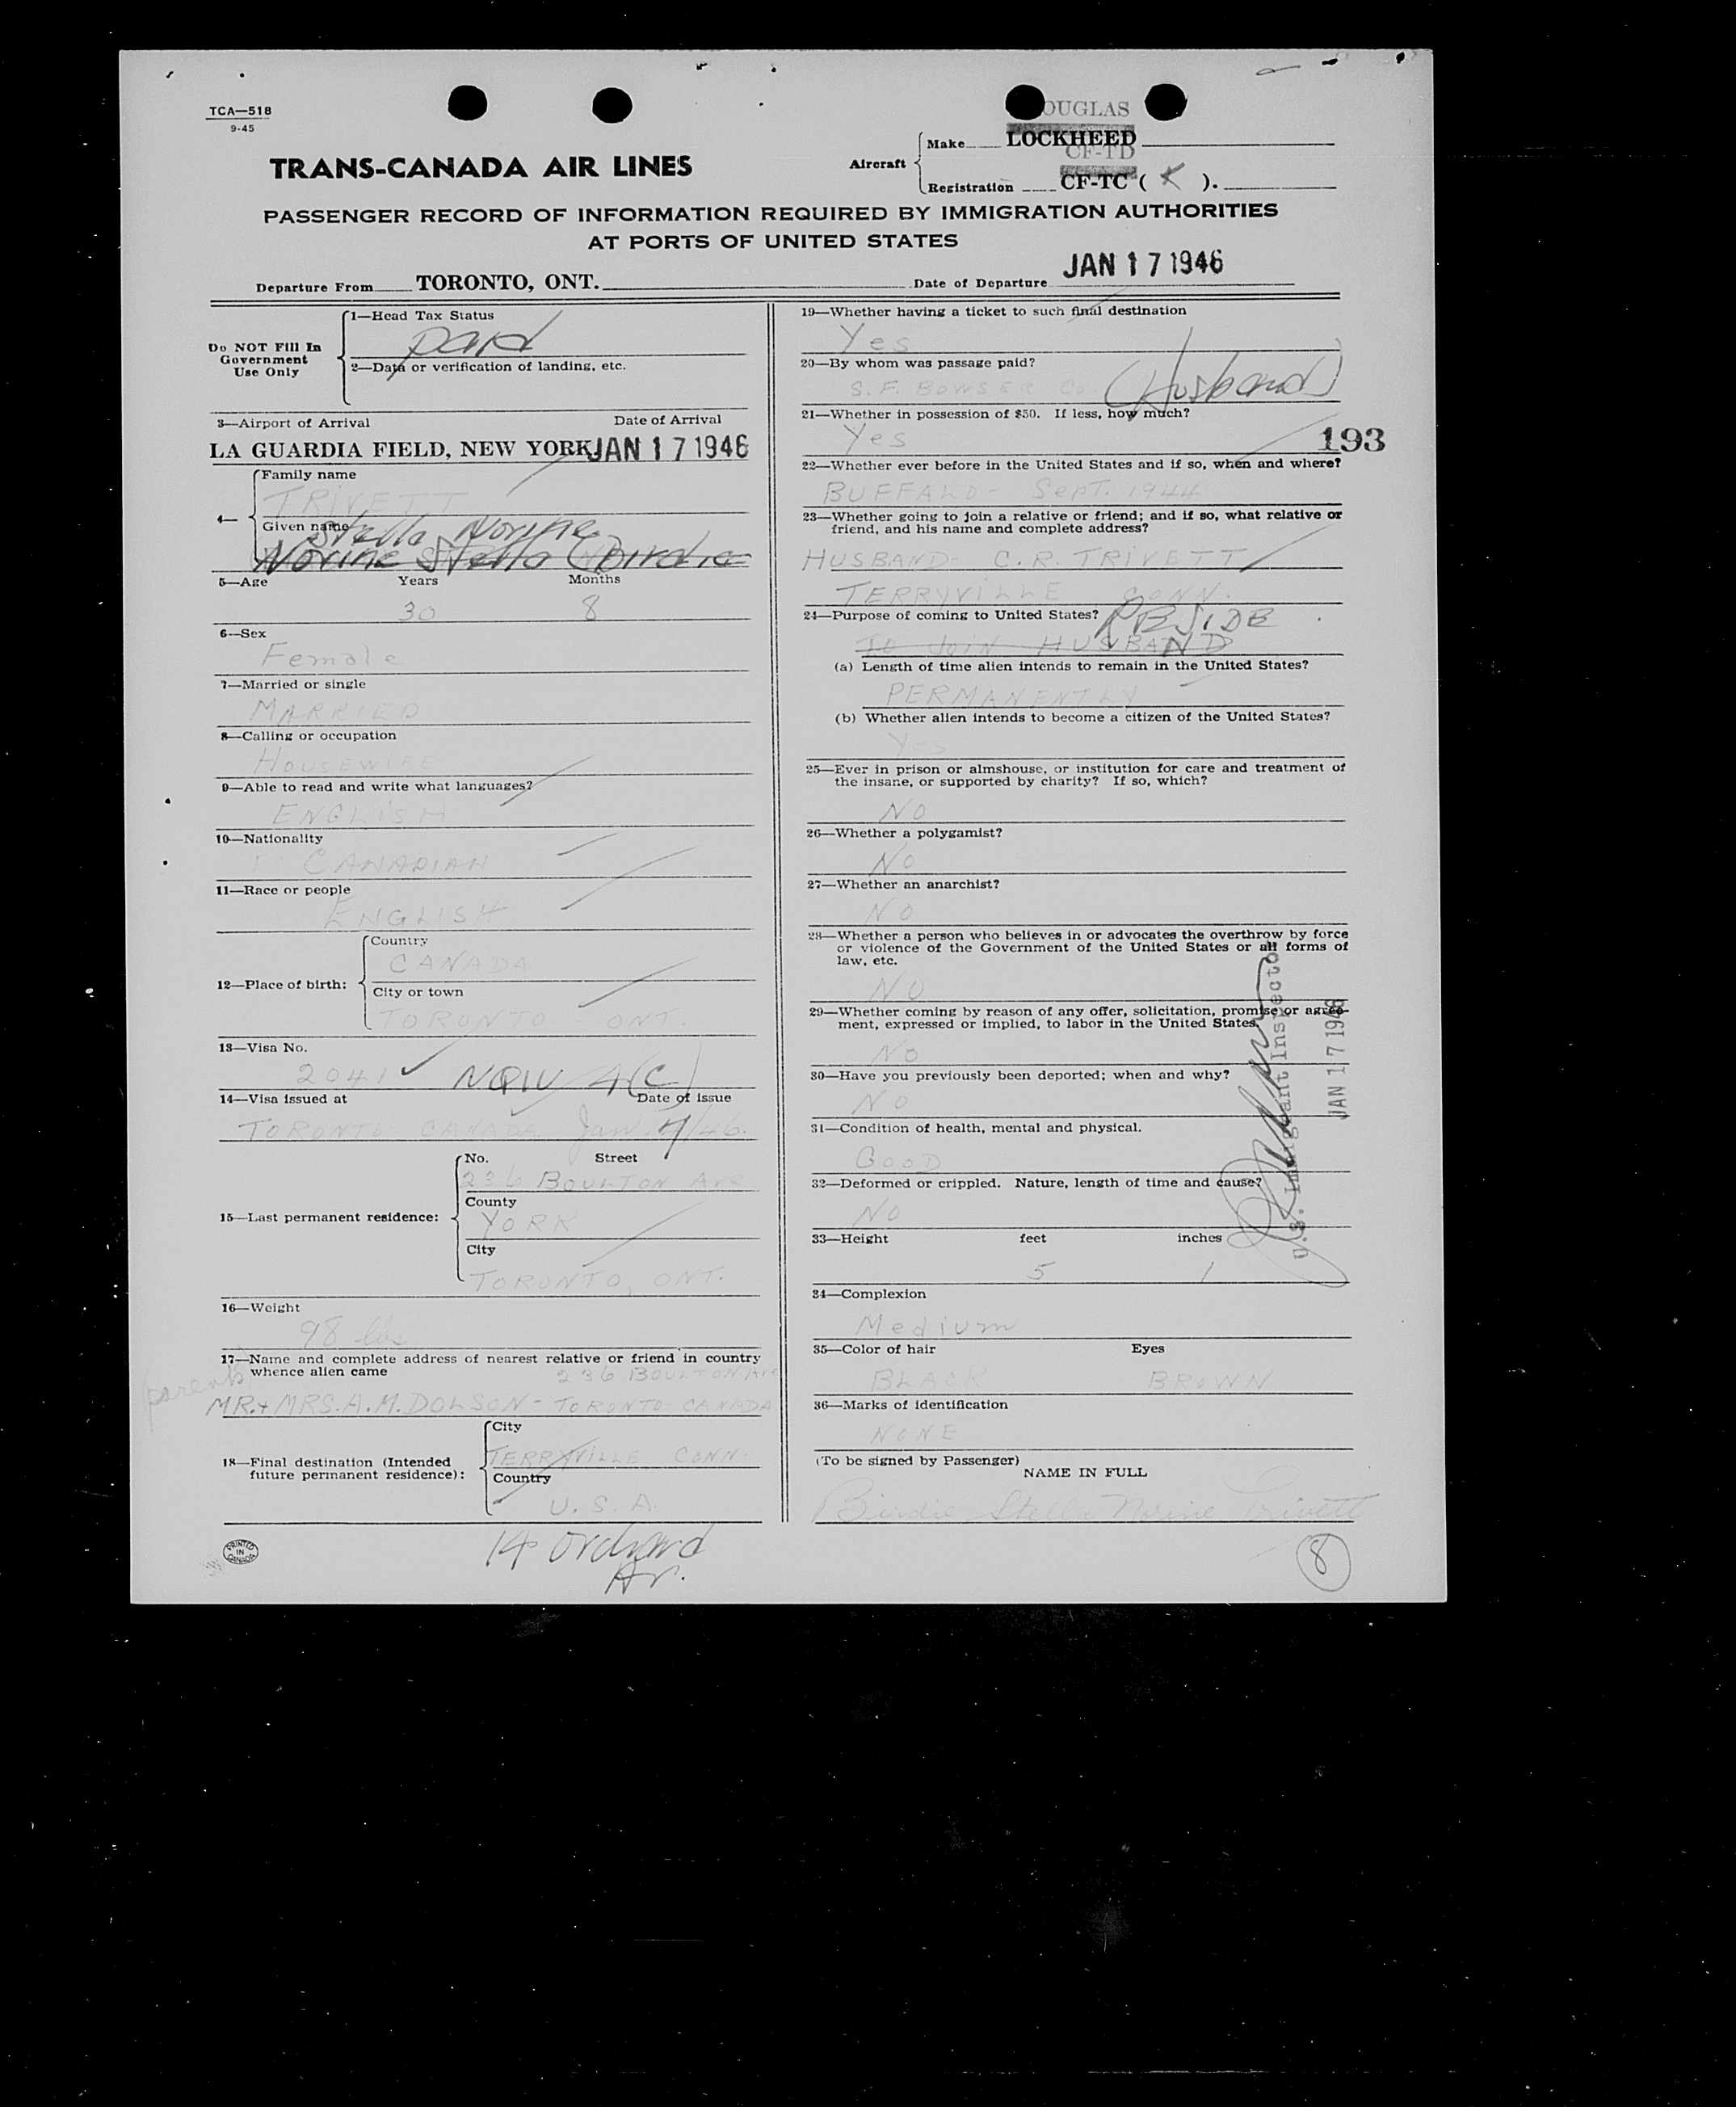 TCA—518
9-45
OUGLAS
TRANS-CANADA AIR LINES
Aircraft
Make LOCKHEED
CF-TD
Registration CF-TC ( K ).
PASSENGER RECORD OF INFORMATION REQUIRED BY IMMIGRATION AUTHORITIES
AT PORTS OF UNITED STATES
Departure From TORONTO, ONT. Date of Departure JAN 17 1946
Do NOT Fill In
Government
Use Only
1—Head Tax Status
paid
2—Data or verification of landing, etc.
3—Airport of Arrival Date of Arrival
LA GUARDIA FIELD, NEW YORK JAN 17 1946
4—
Family name
TRIVETT
Given name
Stella Norine
Norine Stella (Birdie
5—Age Years Months
30 8
6—Sex
Female
7—Married or single
MARRIED
8—Calling or occupation
HOUSEWIFE
9—Able to read and write what languages?
ENGLISH
10—Nationality
CANADIAN
11—Race or people
ENGLISH
12—Place of birth:
Country
CANADA
City or town
TORONTO ONT.
13—Visa No.
2041 ✓ NQIV 4(C)
14—Visa issued at Date of issue
TORONTO CANADA Jan. 7/46.
15—Last permanent residence:
No. Street
236 BOULTON Ave
County
YORK
City
TORONTO, ONT.
16—Weight
98 lbs
17—Name and complete address of nearest relative or friend in country
whence alien came 236 BOULTON Ave
parents
MR. + MRS. A. M. DOLSON - TORONTO CANADA
18—Final destination (Intended
future permanent residence):
City
TERRYVILLE CONN.
Country
U. S. A.
PRINTED
IN
CANADA
14 Orchard
Av.
19—Whether having a ticket to such final destination
Yes
20—By whom was passage paid?
S. F. BOWSER Co. (Husband)
21—Whether in possession of $50. If less, how much?
Yes
193
22—Whether ever before in the United States and if so, when and where?
BUFFALO - Sept. 1944
23—Whether going to join a relative or friend; and if so, what relative or
friend, and his name and complete address?
HUSBAND - C. R. TRIVETT
TERRYVILLE CONN.
24—Purpose of coming to United States? RESIDE
To Join HUSBAND
(a) Length of time alien intends to remain in the United States?
PERMANENTLY
(b) Whether alien intends to become a citizen of the United States?
Yes
25—Ever in prison or almshouse, or institution for care and treatment of
the insane, or supported by charity? If so, which?
NO
26—Whether a polygamist?
NO
27—Whether an anarchist?
NO
28—Whether a person who believes in or advocates the overthrow by force
or violence of the Government of the United States or all forms of
law, etc.
NO
29—Whether coming by reason of any offer, solicitation, promise or agree-
ment, expressed or implied, to labor in the United States.
NO
30—Have you previously been deported; when and why?
NO
31—Condition of health, mental and physical.
GOOD
32—Deformed or crippled. Nature, length of time and cause?
NO
33—Height feet inches
5 1
34—Complexion
Medium
35—Color of hair Eyes
BLACK BROWN
36—Marks of identification
NONE
(To be signed by Passenger)
NAME IN FULL
Birdie Stella Norine Trivett
8
U.S. Immigrant Inspector
JAN 17 1946